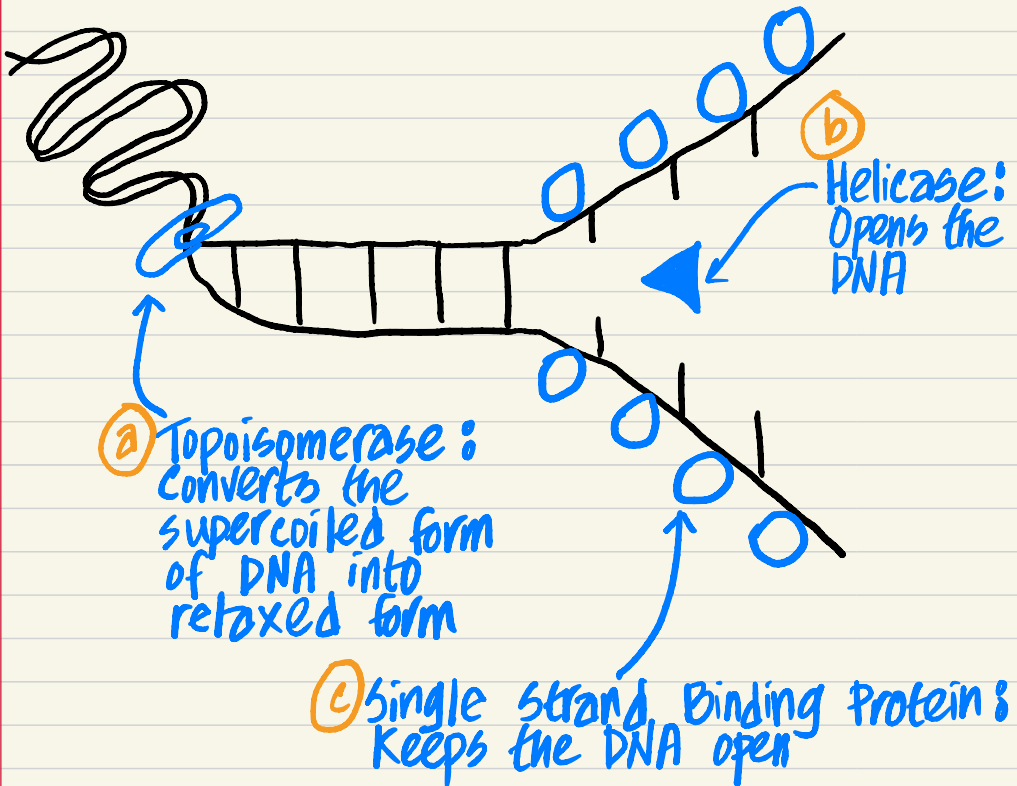 b
Helicase:
Opens the
DNA
a Topoisomerase:
converts the
supercoiled form
of DNA into
relaxed form
c Single Strand Binding Protein:
Keeps the DNA open